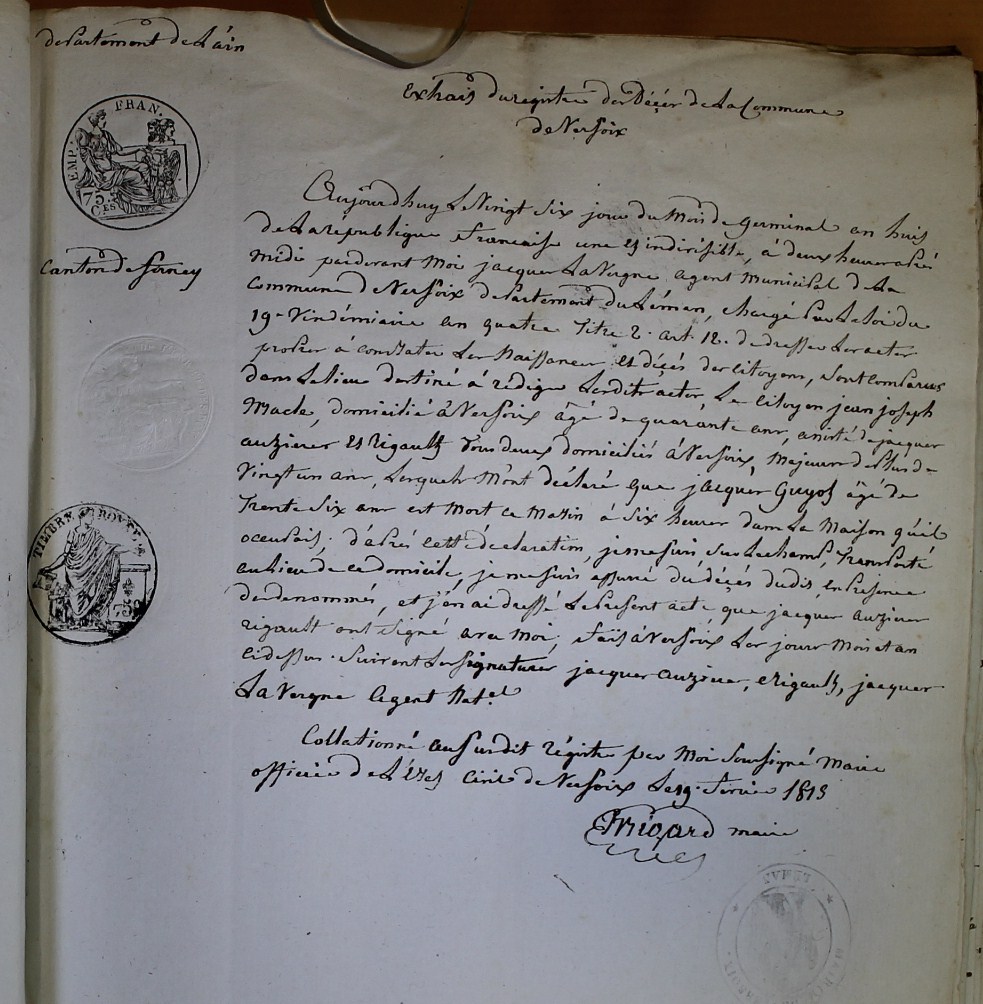 departement de L'ain
Extrais du registre des Décés de La Commune
de Versoix
EMP. FRAN.
75
CES
Canton de ferney
TIMBRE ROYAL
Aujourdhuy Le Vingt Six jour du Mois de germinal an huit
de La république francaise une et indivisible, à deux heures aprés
midi pardevant Moi jacques LaVergne agent Municipal de La
Commune de Versoix departement du Léman, chargé par La loi du
19e Vindémiaire an quatre titre 2. art. 12. de dresser Les actes
propres à constater Les Naissances et décés des Citoyens, sont comparus
dans Le lieu destiné à rédiger Lesdits actes, Le Citoyen jean joseph
Macle, domicilié à Versoix âgé de quarante ans, assisté de jacques
auzieres et Rigault tous deux domiciliés à Versoix, Majeurs de Plus de
Vingt un ans, Lesquels M'ont déclaré que jacques Guyot âgé de
Trente Six ans est mort ce Matin à Six heures dans La Maison qu'il
occupais; d'aprés cette déclaration, je me suis sur Le champ, Transporté
au Lieu de ce domicile, je me suis assurré du décés dudis, en Présence
des denommés, et j'en ai dressé Le Present acte que jacques auzieres
rigault ont signé avec Moi, fais à Versoix Les jours Mois et an
cidessus. Suivent Les signatures jacques auzieres, Rigault, jacques
LaVergne agent Nat.al
Collationné au Susdit régistre par Moi Soussigné Maire
officier de L'Etat Civil de Versoix Le 19. fevrier 1813
maire